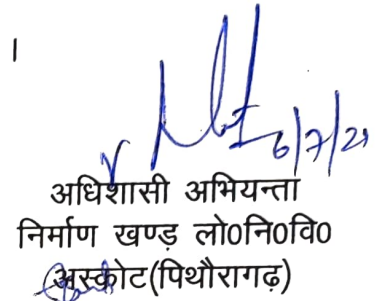 ।
6/7/21
अधिशासी अभियन्ता
निर्माण खण्ड़ लो0नि0वि0
अस्कोट(पिथौरागढ़)